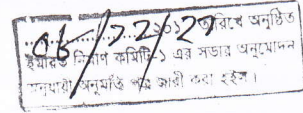 ০৮/১২/২২
২০১ তারিখে অনুষ্ঠিত
ইমারত নির্মাণ কমিটি-১ এর সভার অনুমোদন
অনুযায়ী অনুমতি পত্র জারী করা হইল।